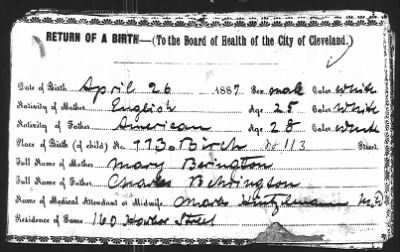 RETURN OF A BIRTH—(To the Board of Health of the City of Cleveland.)
Date of Birth April 26 1887 Sex male Color White
Nativity of Mother English Age 25 Color White
Nativity of Father American Age 28 Color White
Place of Birth (of child) No. 113 Birch No 113 Street.
Full Name of Mother Mary Berington
Full Name of Father Charles Behrington
Name of Medical Attendant or Midwife, Charles M.D
Residence of Same 160 Street